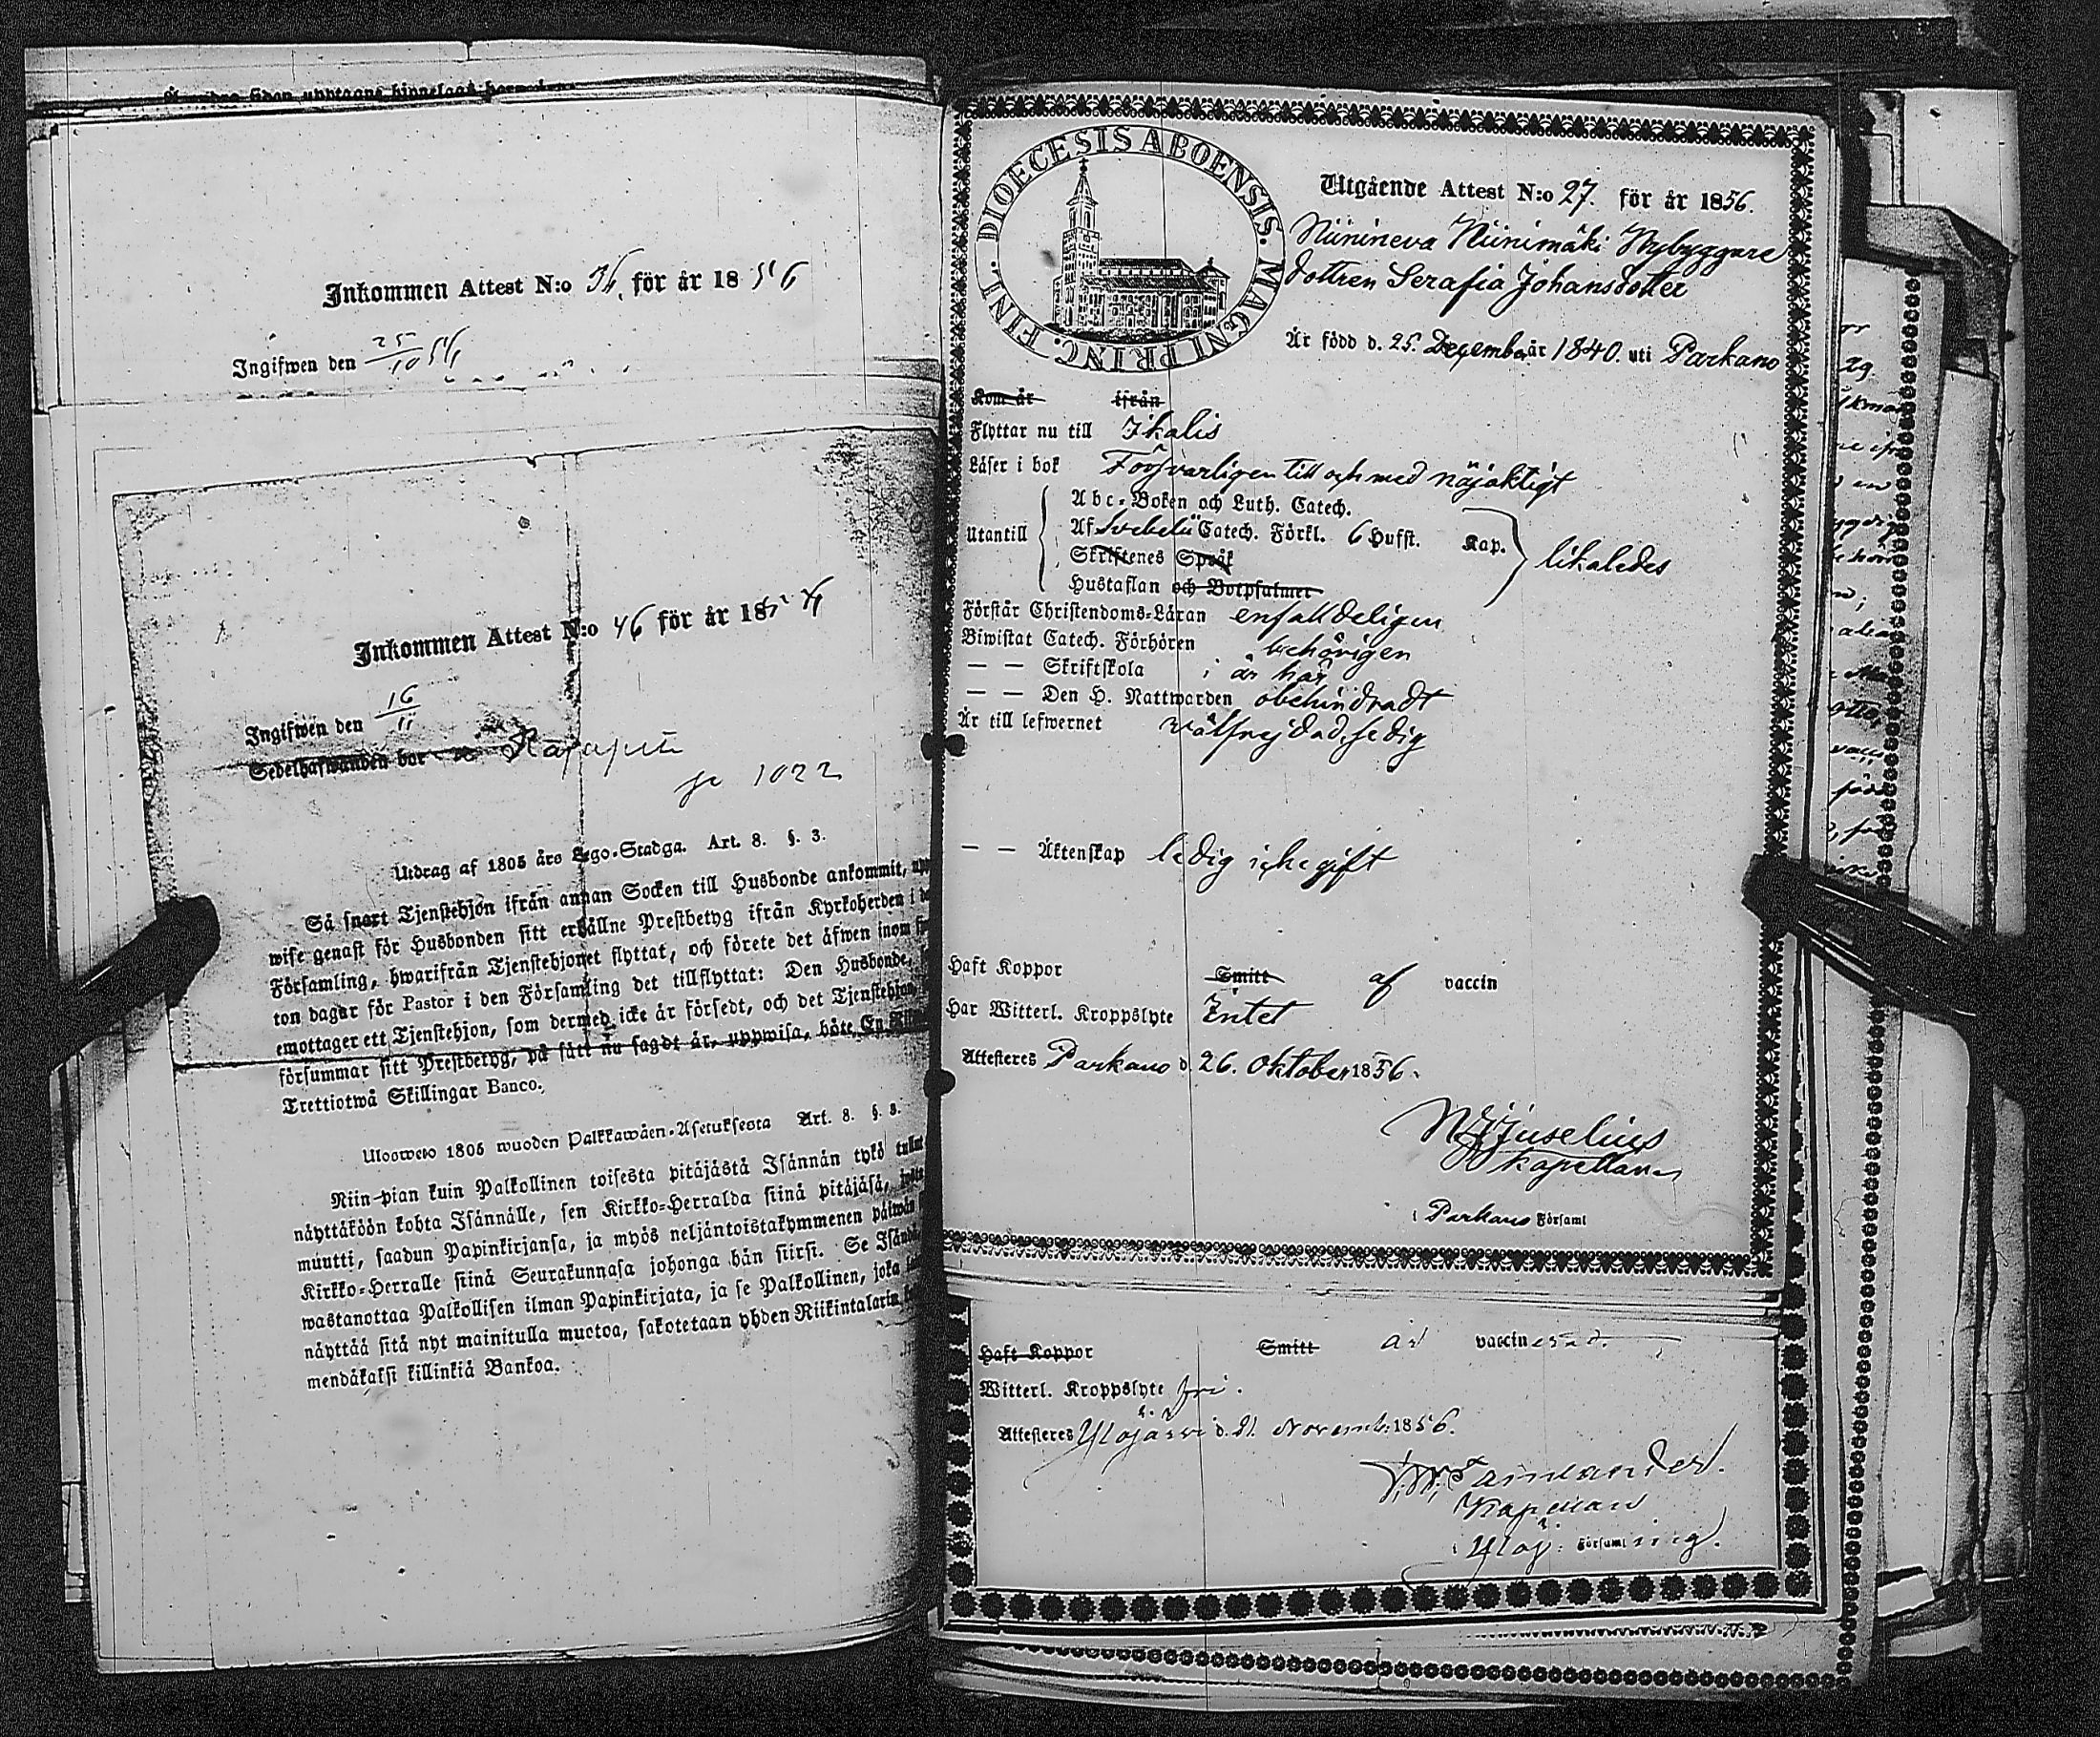 Inkommen Attest N:o för år 1856
Ingifwen den 25/10 56
Inkommen Attest N:o 46 för år 18
Ingifwen den 16/11
Sedelhafwanden bor
1022
Utdrag af 1805 års Lego-Stadga. Art. 8. §. 3.
Så snart Tjenstehjon ifrån annan Socken till Husbonde ankommit,
wise genast för Husbonden sitt erhållne Prestbetyg ifrån Kyrkoherden i
Församling, hwarifrån Tjenstehjonet flyttat, och förete det äfwen inom
ton dagar för Pastor i den Församling det tillflyttat: Den Husbonde,
emottager ett Tjenstehjon, som dermed icke är försedt, och det Tjenstehjon
försummar sitt Prestbetyg, på sätt nu sagdt är, uppwisa, böte En
Trettiotwå Skillingar Banco.
Ulosweto 1805 wuoden Palkkawäen-Asetuksesta Art. 8. §. 3.
Niin-pian kuin Palkollinen toisesta pitäjästä Isännän tykö tullut
näyttäköön kohta Isännälle, sen Kirkko-Herralda siinä pitäjäsä,
muutti, saadun Papinkirjansa, ja myös neljäntoistakymmenen päiwän
Kirkko-Herralle siinä Seurakunnasa johonga hän siirsi. Se Isändä
wastanottaa Palkollisen ilman Papinkirjata, ja se Palkollinen, joka
näyttää sitä nyt mainitulla muotoa, sakotetaan yhden Riikintalarin
mendäkaksi killinkiä Bankoa.
DIOECESIS ABOENSIS. MAGNI PRINC. FINL.
Utgående Attest N:o 27. för år 1856.
Niinineva Niinimäki Nybyggare
dottren Serafia Johansdotter
Är född d. 25. December år 1840. uti Parkano
Kom år ifrån
Flyttar nu till Ikalis
Läser i bok Försvarligen till och med nöjaktigt
Abc-Boken och Luth. Catech.
Utantill Af Svebelii Catech. Förkl. 6 Hufst. Kap. likaledes
Skriftenes Språk
Hustaflan och Botpsalmer
Förstår Christendoms-Läran enfalldeligen
Biwistat Catech. Förhören behörigen
— — Skriftskola i år här
— — Den H. Nattwarden obehindradt
Är till lefwernet välfrejdad, ledig
— — Äktenskap ledig icke gift
Haft Koppor Smitt af vaccin
Har Witterl. Kroppslyte Intet
Attesteres Parkano d. 26. Oktober 1856.
Kapellan
i Parkano Församl
Haft Koppor Smitt är vaccinerad.
Witterl. Kroppslyte fri.
Attesteres Ylöjärvi d. 21. Novemb: 1856.
Kapellan
i Ylöj: Församling.